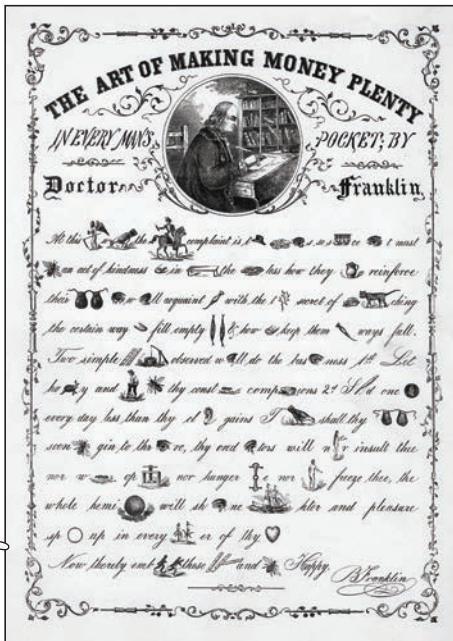 THE ART OF MAKING MONEY PLENTY
IN EVERY MAN'S POCKET; BY
Doctor Franklin
At this the complaint is t s so s ce t must
an act of kindness in the less how they reinforce
their w ll acquaint with the t secret of ching
the certain way fill empty & how keep them ways full.
Two simple observed w ll do the bus ness 1st Let
ho y and thy const comp ions 2d S d one
every day less than thy cl gains T shall thy
soon gin to thr ve, thy cred tors will n r insult thee
nor w op nor hunger e nor freeze thee, the
whole hemi will sh ne hter and pleasure
sp np in every er of thy
Now thereby emb these and Happy.
B Franklin